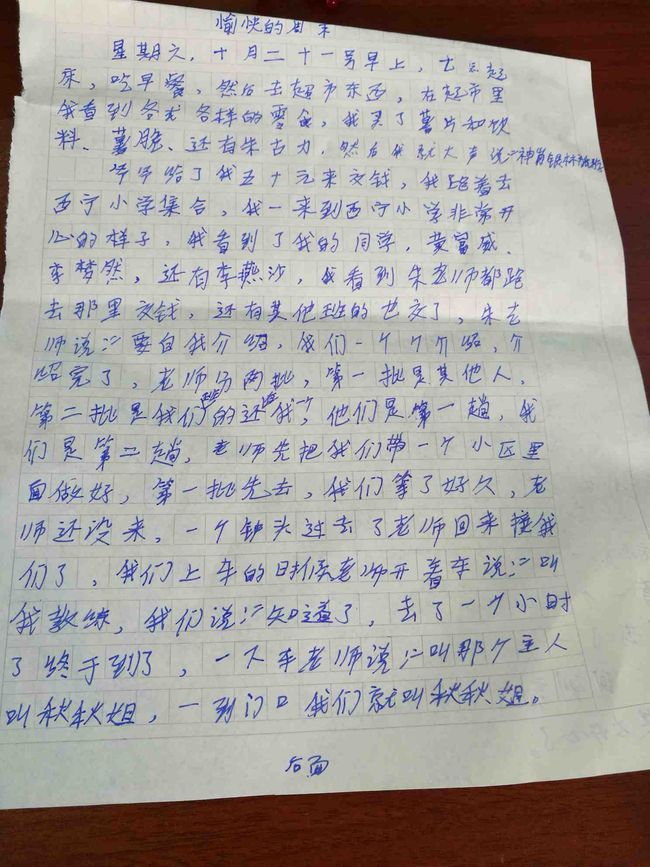 愉快的周末
星期六，十月二十一号早上，七点起
床，吃早餐，然后去超市东西，在超市里
我看到各式各样的零食，我买了薯片和饮
料、薯脆、还有朱古力，然后我就大声说：
爷爷给了我五十元来交钱，我跑着去
西宁小学集合，我一来到西宁小学非常开
心的样子，我看到了我的同学，黄富威、
李梦然，还有李燕沙，我看到朱老师都跑
去那里交钱，还有其他班的也交了，朱老
师说：要自我介绍，我们一个个介绍，介
绍完了，老师分两批，第一批是其他人，
第二批是我们的还我，他们是第一趟，我
们是第二趟，老师先把我们带一个小区里
面做好，第一批先去，我们等了好久，老
师还没来，一个钟头过去了老师回来接我
们了，我们上车的时候老师开着车说：叫
我教练，我们说：知道了，去了一个小时
了终于到了，一下车老师说：叫那个主人
叫秋秋姐，一到门口我们就叫秋秋姐。
后面